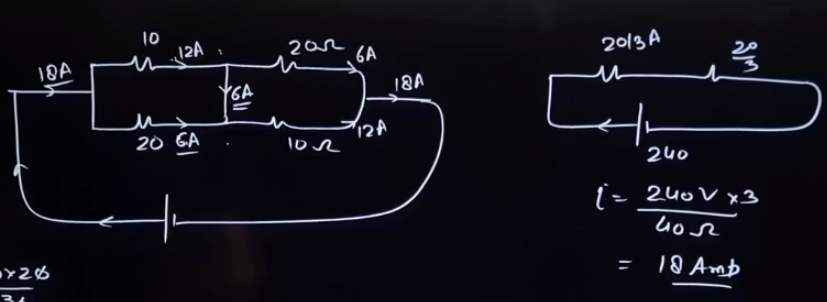 10
12A
20Ω
6A
18A
6A
18A
20 6A
10Ω
12A
20/3 A
20/3
240
i = 240V × 3 / 40Ω
= 18 Amp
×20